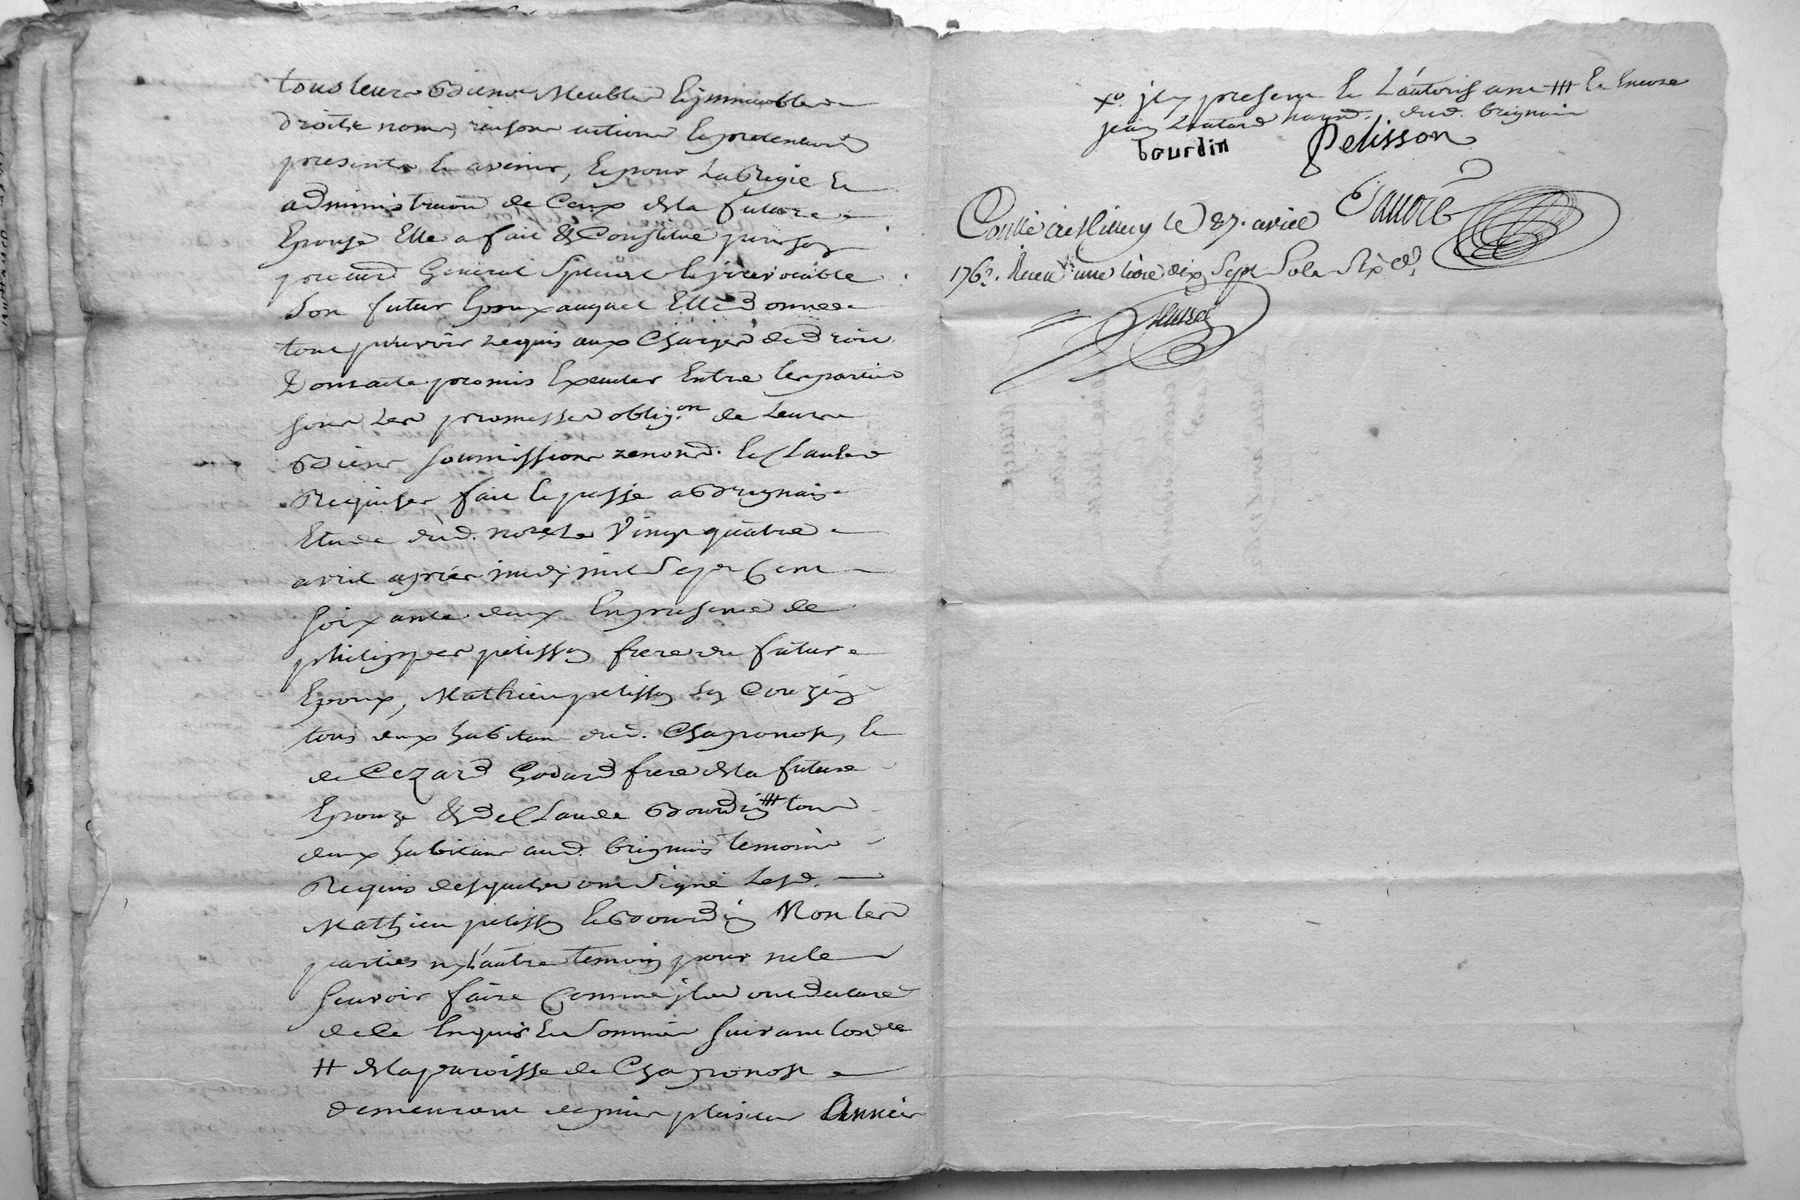 tous leurs Biens Meubles & jmmeubles
droits noms raisons actions & pretentions
presents & avenir, & pour La Regie &
administraon de Ceux de la future
Epouse Elle a fait & Constitué pour son
procurr General Special & jrrevocable
Son futur Epoux auquel Elle Donne
tout pouvoir requis aux Charges de Droit
Dont acte promis Executer Entre les parties
sous Les promesses oblig.on de Leurs
Biens soumissions renond. & Clauses
Requises fait & passé a Brignais
Etude dud. nore Le Vingt quatre
avril après midy mil Sept Cent
soixante deux En presence de
philippes pelisson frere du futur
Epoux, Mathieu pelisson son Couzin
tous deux habitans dud. Chaponost, &
de Cezard Godard frere de la future
Epouze & de Claude Bourdin ⧻ tous
deux habitans aud. brignais temoins
Requis desquels ont signé Lesd.
Mathieu pelisson & Bourdin Non les
parties ny L'autre temoin pour ne le
sçavoir faire Comme jls ont declaré
de ce Enquis & Sommés suivant Lordce
# de la paroisse de Chaponost
demeurant depuis plusieurs Années
xo. jcy present & L'autorisant ⧻ & Encore
jean nord. dud. brignais
bourdin Pelisson
Conllé a le 27. avril
1762. Recu une livre dix Sept Sols Six d.